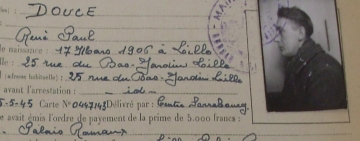 DOUCE
René Paul
naissance : 17 Mars 1906 à Lille
25 rue du Bas-Jardin Lille
(adresse habituelle) : 25 rue du Bas-Jardin Lille
avant l'arrestation : — id —
5-5-45 Carte N° 0447143 Délivré par : Centre Sarrebourg
avait émis l'ordre de payement de la prime de 5.000 francs :
Palais Rameau